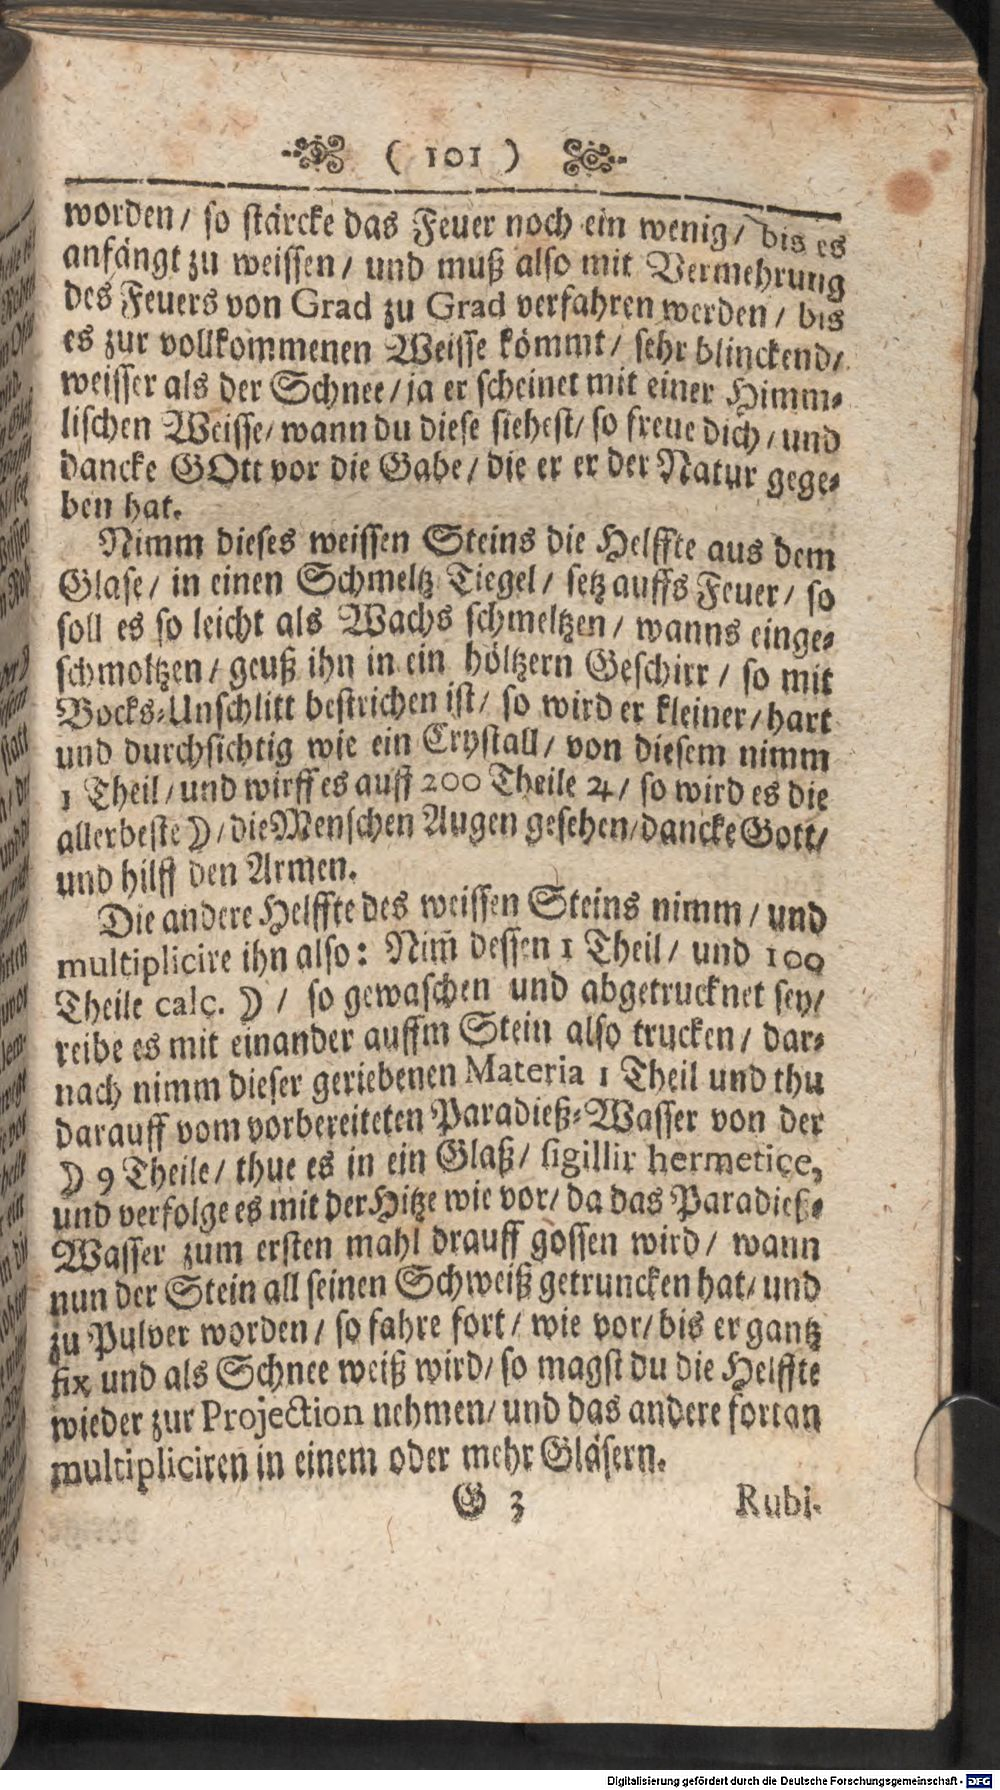 ( 101 )
worden/ so stärcke das Feuer noch ein wenig/ bis es
anfängt zu weissen/ und muß also mit Vermehrung
des Feuers von Grad zu Grad verfahren werden/ bis
es zur vollkommenen Weisse kömmt/ sehr blinckend/
weisser als der Schnee/ ja er scheinet mit einer Himm-
lischen Weisse/ wann du diese siehest/ so freue dich/ und
dancke GOtt vor die Gabe/ die er er der Natur gege-
ben hat.
Nimm dieses weissen Steins die Helffte aus dem
Glase/ in einen Schmeltz Tiegel/ setz auffs Feuer/ so
soll es so leicht als Wachs schmeltzen/ wanns einge-
schmoltzen/ geuß ihn in ein höltzern Geschirr/ so mit
Bocks-Unschlitt bestrichen ist/ so wird er kleiner/ hart
und durchsichtig wie ein Crystall/ von diesem nimm
1 Theil/ und wirff es auff 200 Theile ♃/ so wird es die
allerbeste ☽/ die Menschen Augen gesehen/ dancke Gott/
und hilff den Armen.
Die andere Helffte des weissen Steins nimm/ und
multiplicire ihn also: Nim̃ dessen 1 Theil/ und 100
Theile calc. ☽/ so gewaschen und abgetrucknet sey/
reibe es mit einander auffm Stein also trucken/ dar-
nach nimm dieser geriebenen Materia 1 Theil und thu
darauff vom vorbereiteten Paradieß-Wasser von der
☽ 9 Theile/ thue es in ein Glaß/ sigillir hermetice,
und verfolge es mit der Hitze wie vor/ da das Paradieß-
Wasser zum ersten mahl drauff gossen wird/ wann
nun der Stein all seinen Schweiß getruncken hat/ und
zu Pulver worden/ so fahre fort/ wie vor/ bis er gantz
fix und als Schnee weiß wird/ so magst du die Helffte
wieder zur Projection nehmen/ und das andere fortan
multipliciren in einem oder mehr Gläsern.
G 3 Rubi-
Digitalisierung gefördert durch die Deutsche Forschungsgemeinschaft - DFG